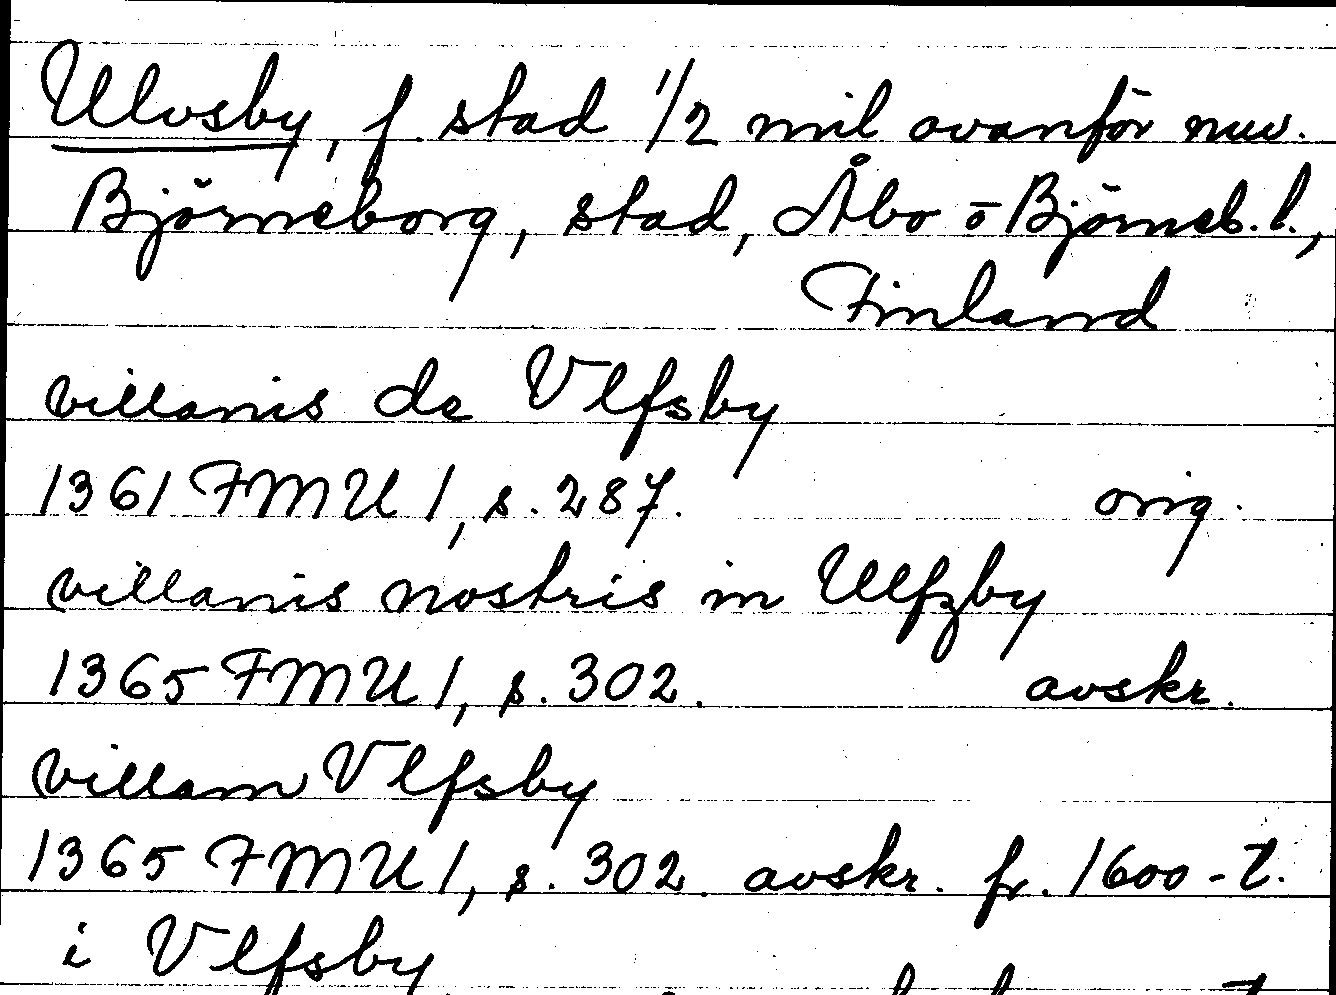 Ulvsby, f. stad 1/2 mil ovanför nuv.
Björneborg, stad, Åbo o Björneb. l.,
Finland
villanis de Vlfsby
1361 FMU 1, s. 287. orig.
villanis nostris in Ulfzby
1365 FMU 1, s. 302. avskr.
villam Vlfsby
1365 FMU 1, s. 302. avskr. fr. 1600-t.
i Vlfsby